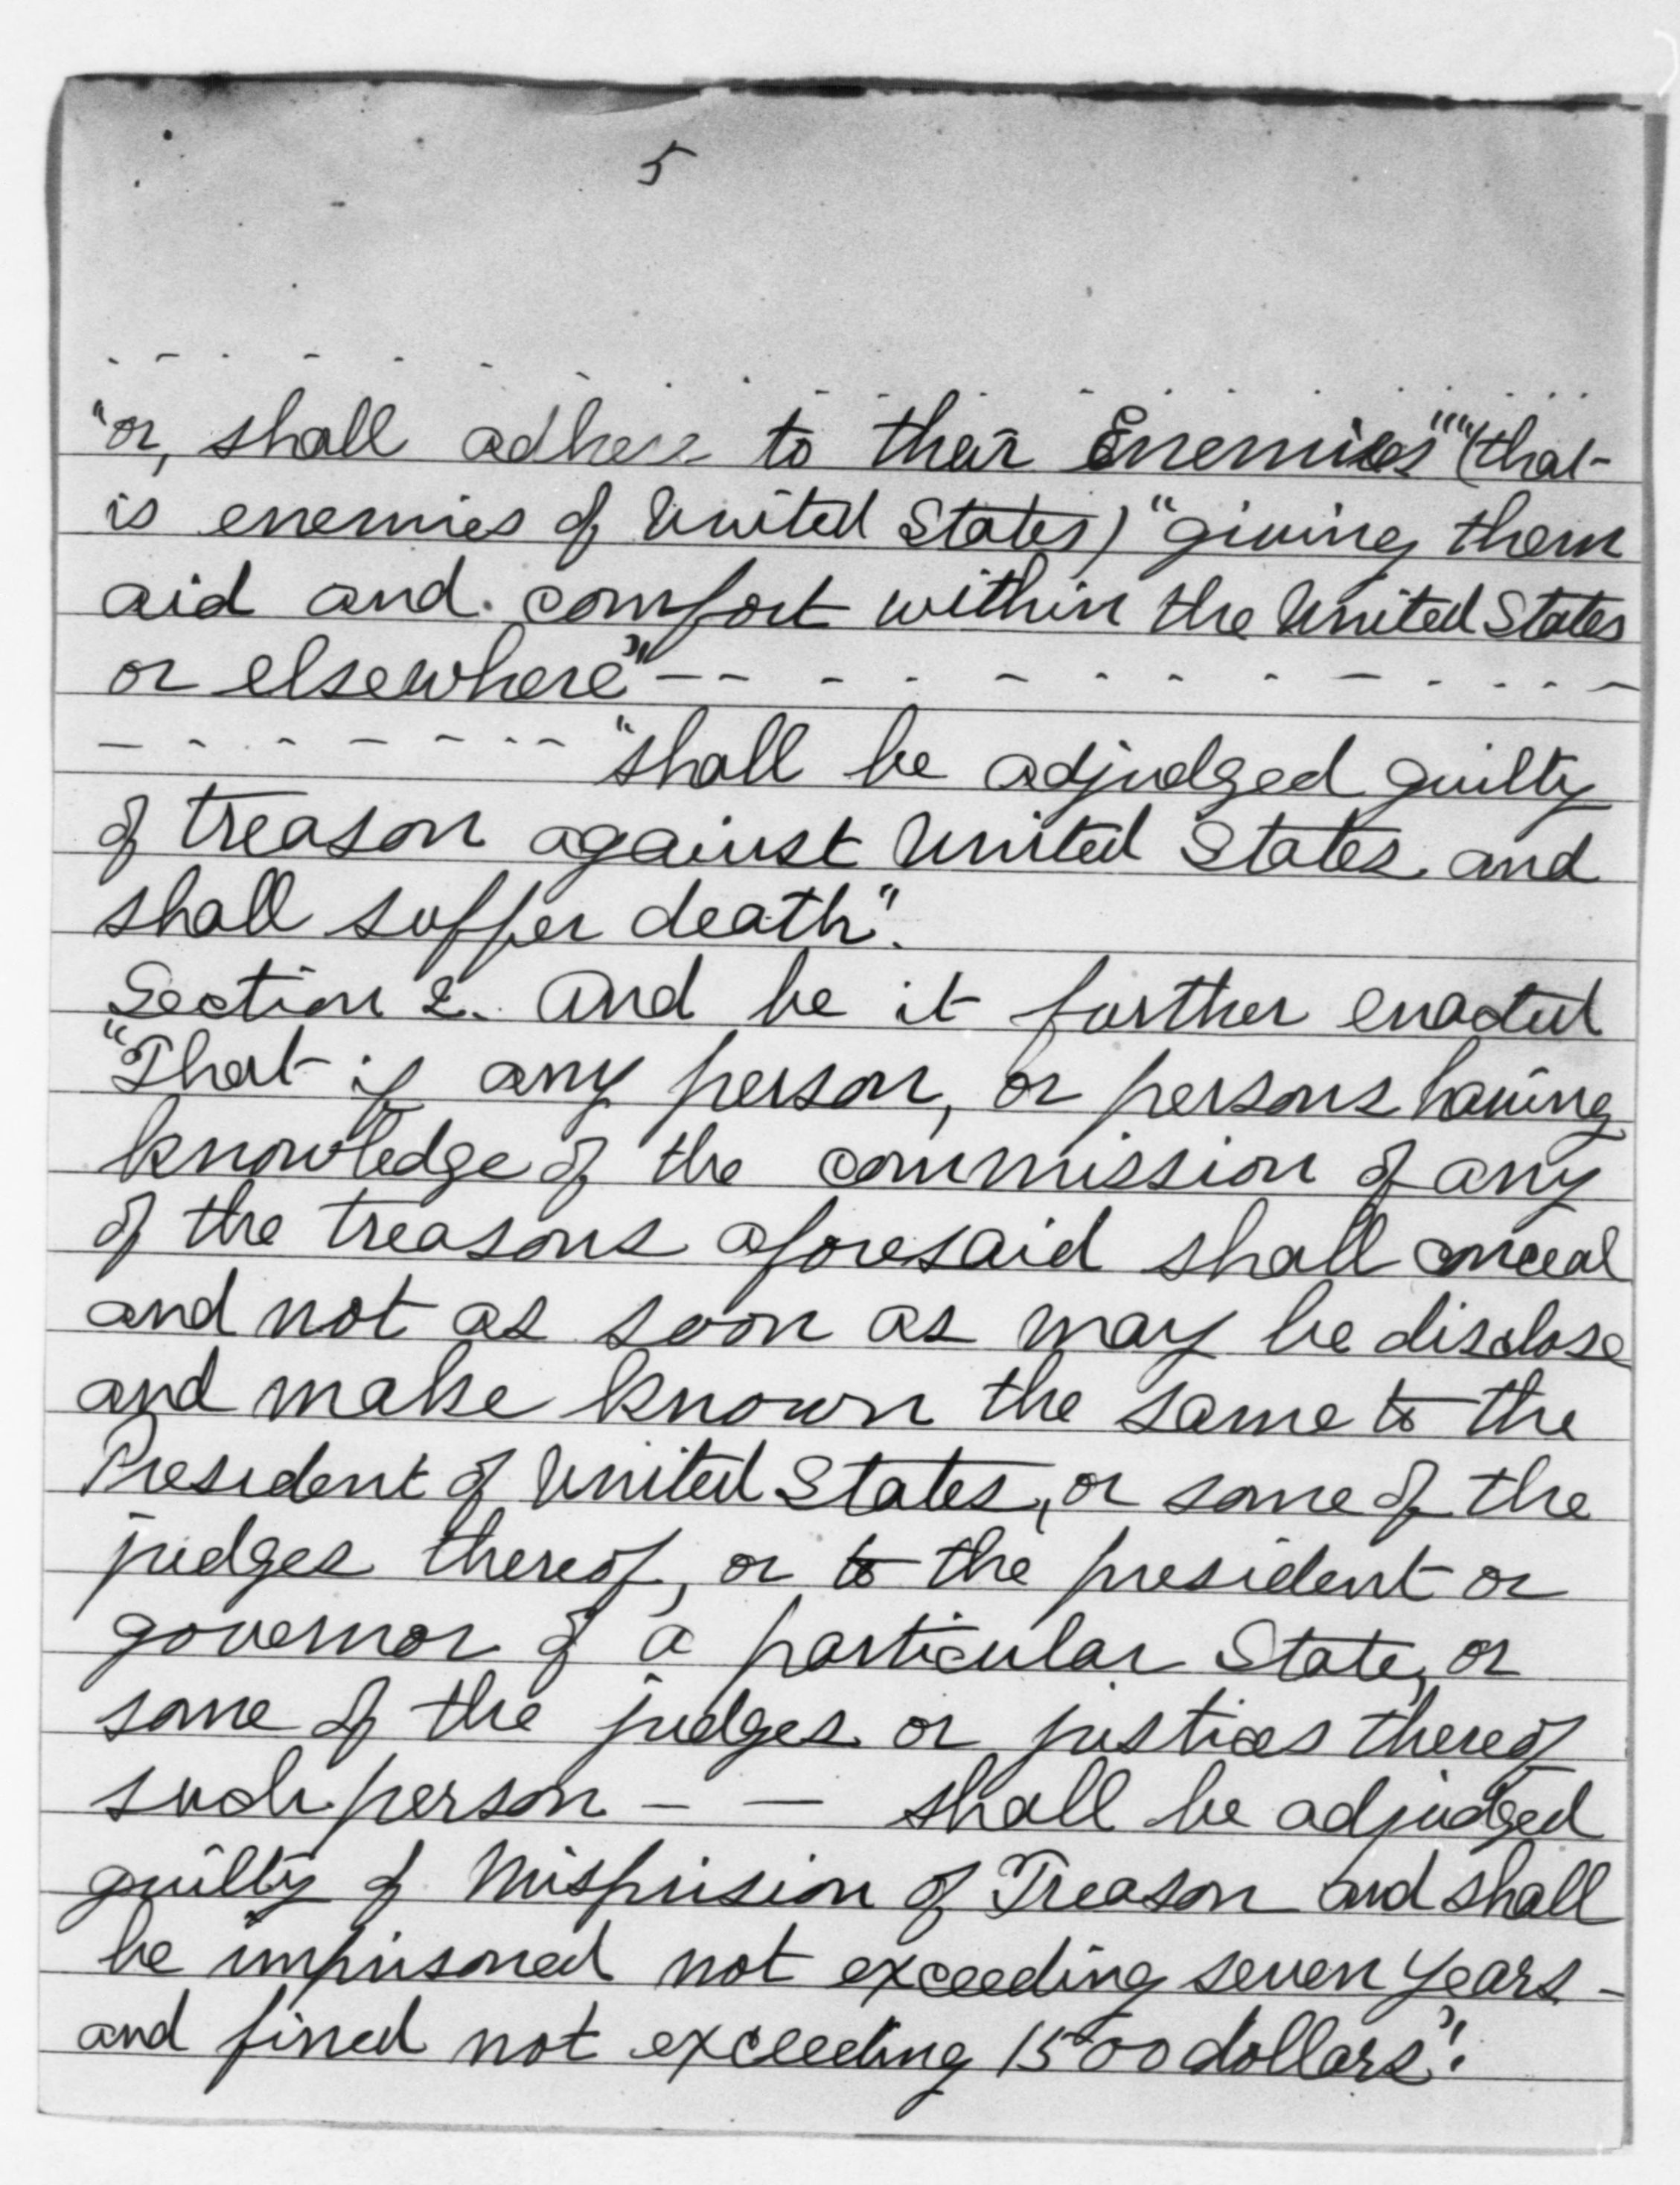 5
- - - - - - - - - - - - - - - - - -
"or, shall adhere to their Enemies""" (that
is enemies of United States) "giving them
aid and comfort within the United States
or elsewhere" - - - - - - - - - - - - -
- - - - - - - - - "shall be adjudged guilty
of treason against United States and
shall suffer death".
Section 2. And be it further enacted
"That if any person, or persons having
knowledge of the commission of any
of the treasons aforesaid shall conceal
and not as soon as may be disclose
and make known the same to the
President of United States, or some of the
judges thereof, or to the president or
governor of a particular State, or
some of the judges or justices thereof
such person - — shall be adjudged
guilty of Misprision of Treason and shall
be imprisoned not exceeding seven years -
and fined not exceeding 1500 dollars".